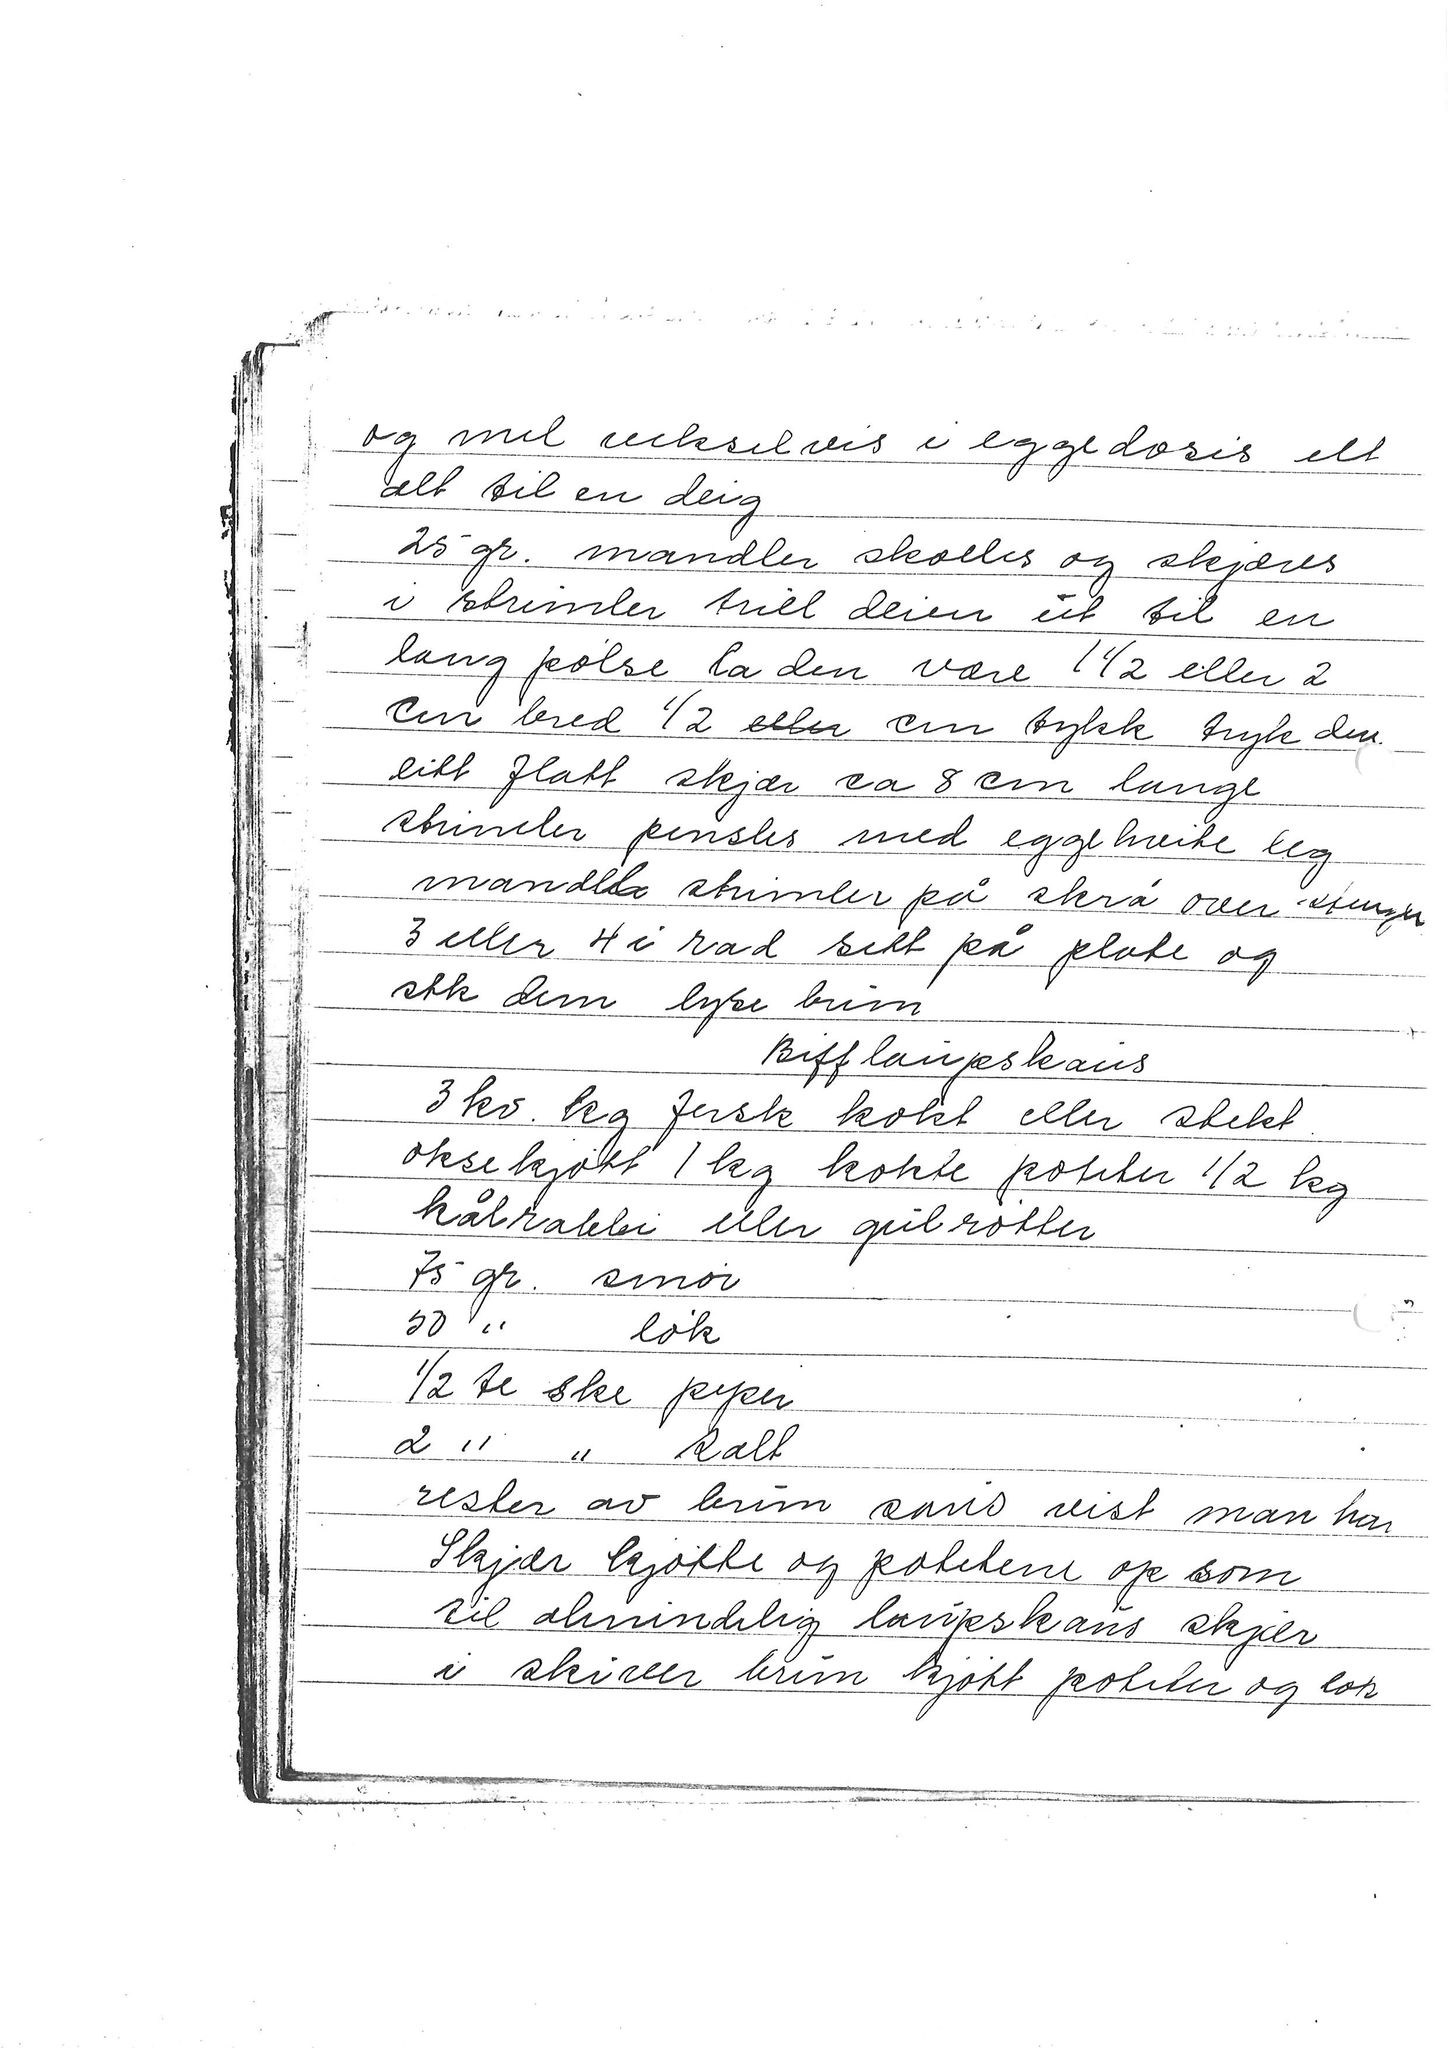 og mel vekselvis i eggedosis elt
alt til en deig
25 gr. mandler skolles og skjæres
i strimler trill deien ut til en
lang pölse la den være 1 1/2 eller 2
cm bred 1/2 eller cm tykk tryk den
litt flatt skjær ca 8 cm lange
strimler pensles med eggehvite leg
mandle strimler på skrå over stenger
3 eller 4 i rad sett på plate og
stk dem lyse brun
Biff laupskaus
3 kv. kg fersk kokt eller stekt
oksekjött 1 kg kokte poteter 1/2 kg
kålrabbi eller gulrötter
75 gr. smör
50 " lök
1/2 te ske peper
2 " " salt
rester av brun saus vist man har
Skjær kjötte og potetene op som
til almindelig laupskaus skjær
i skiver brun kjött poteter og lök